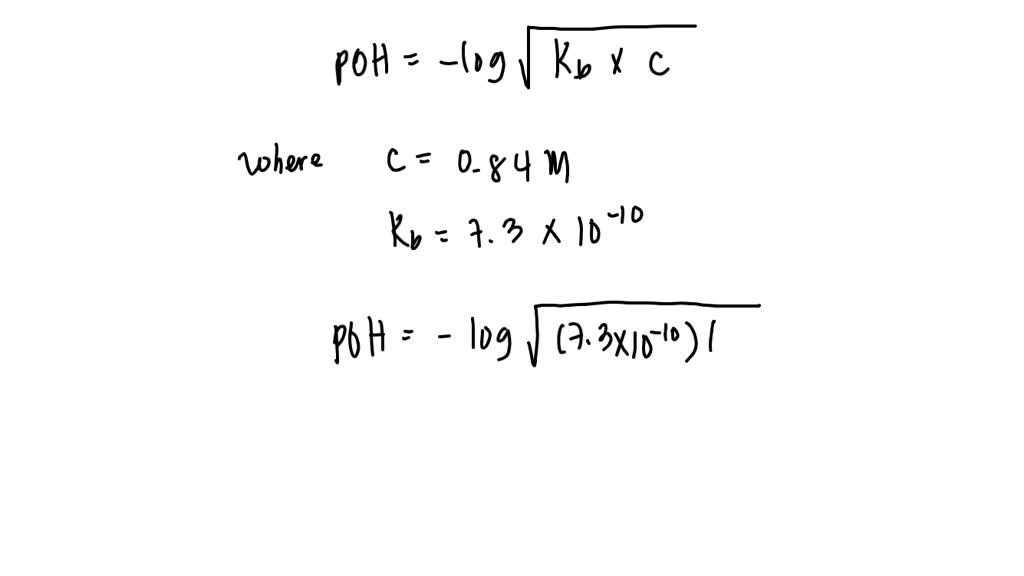 pOH = -log √(Kb x c)
where c = 0.84 M
Kb = 7.3 x 10⁻¹⁰
pOH = - log √((7.3x10⁻¹⁰) (